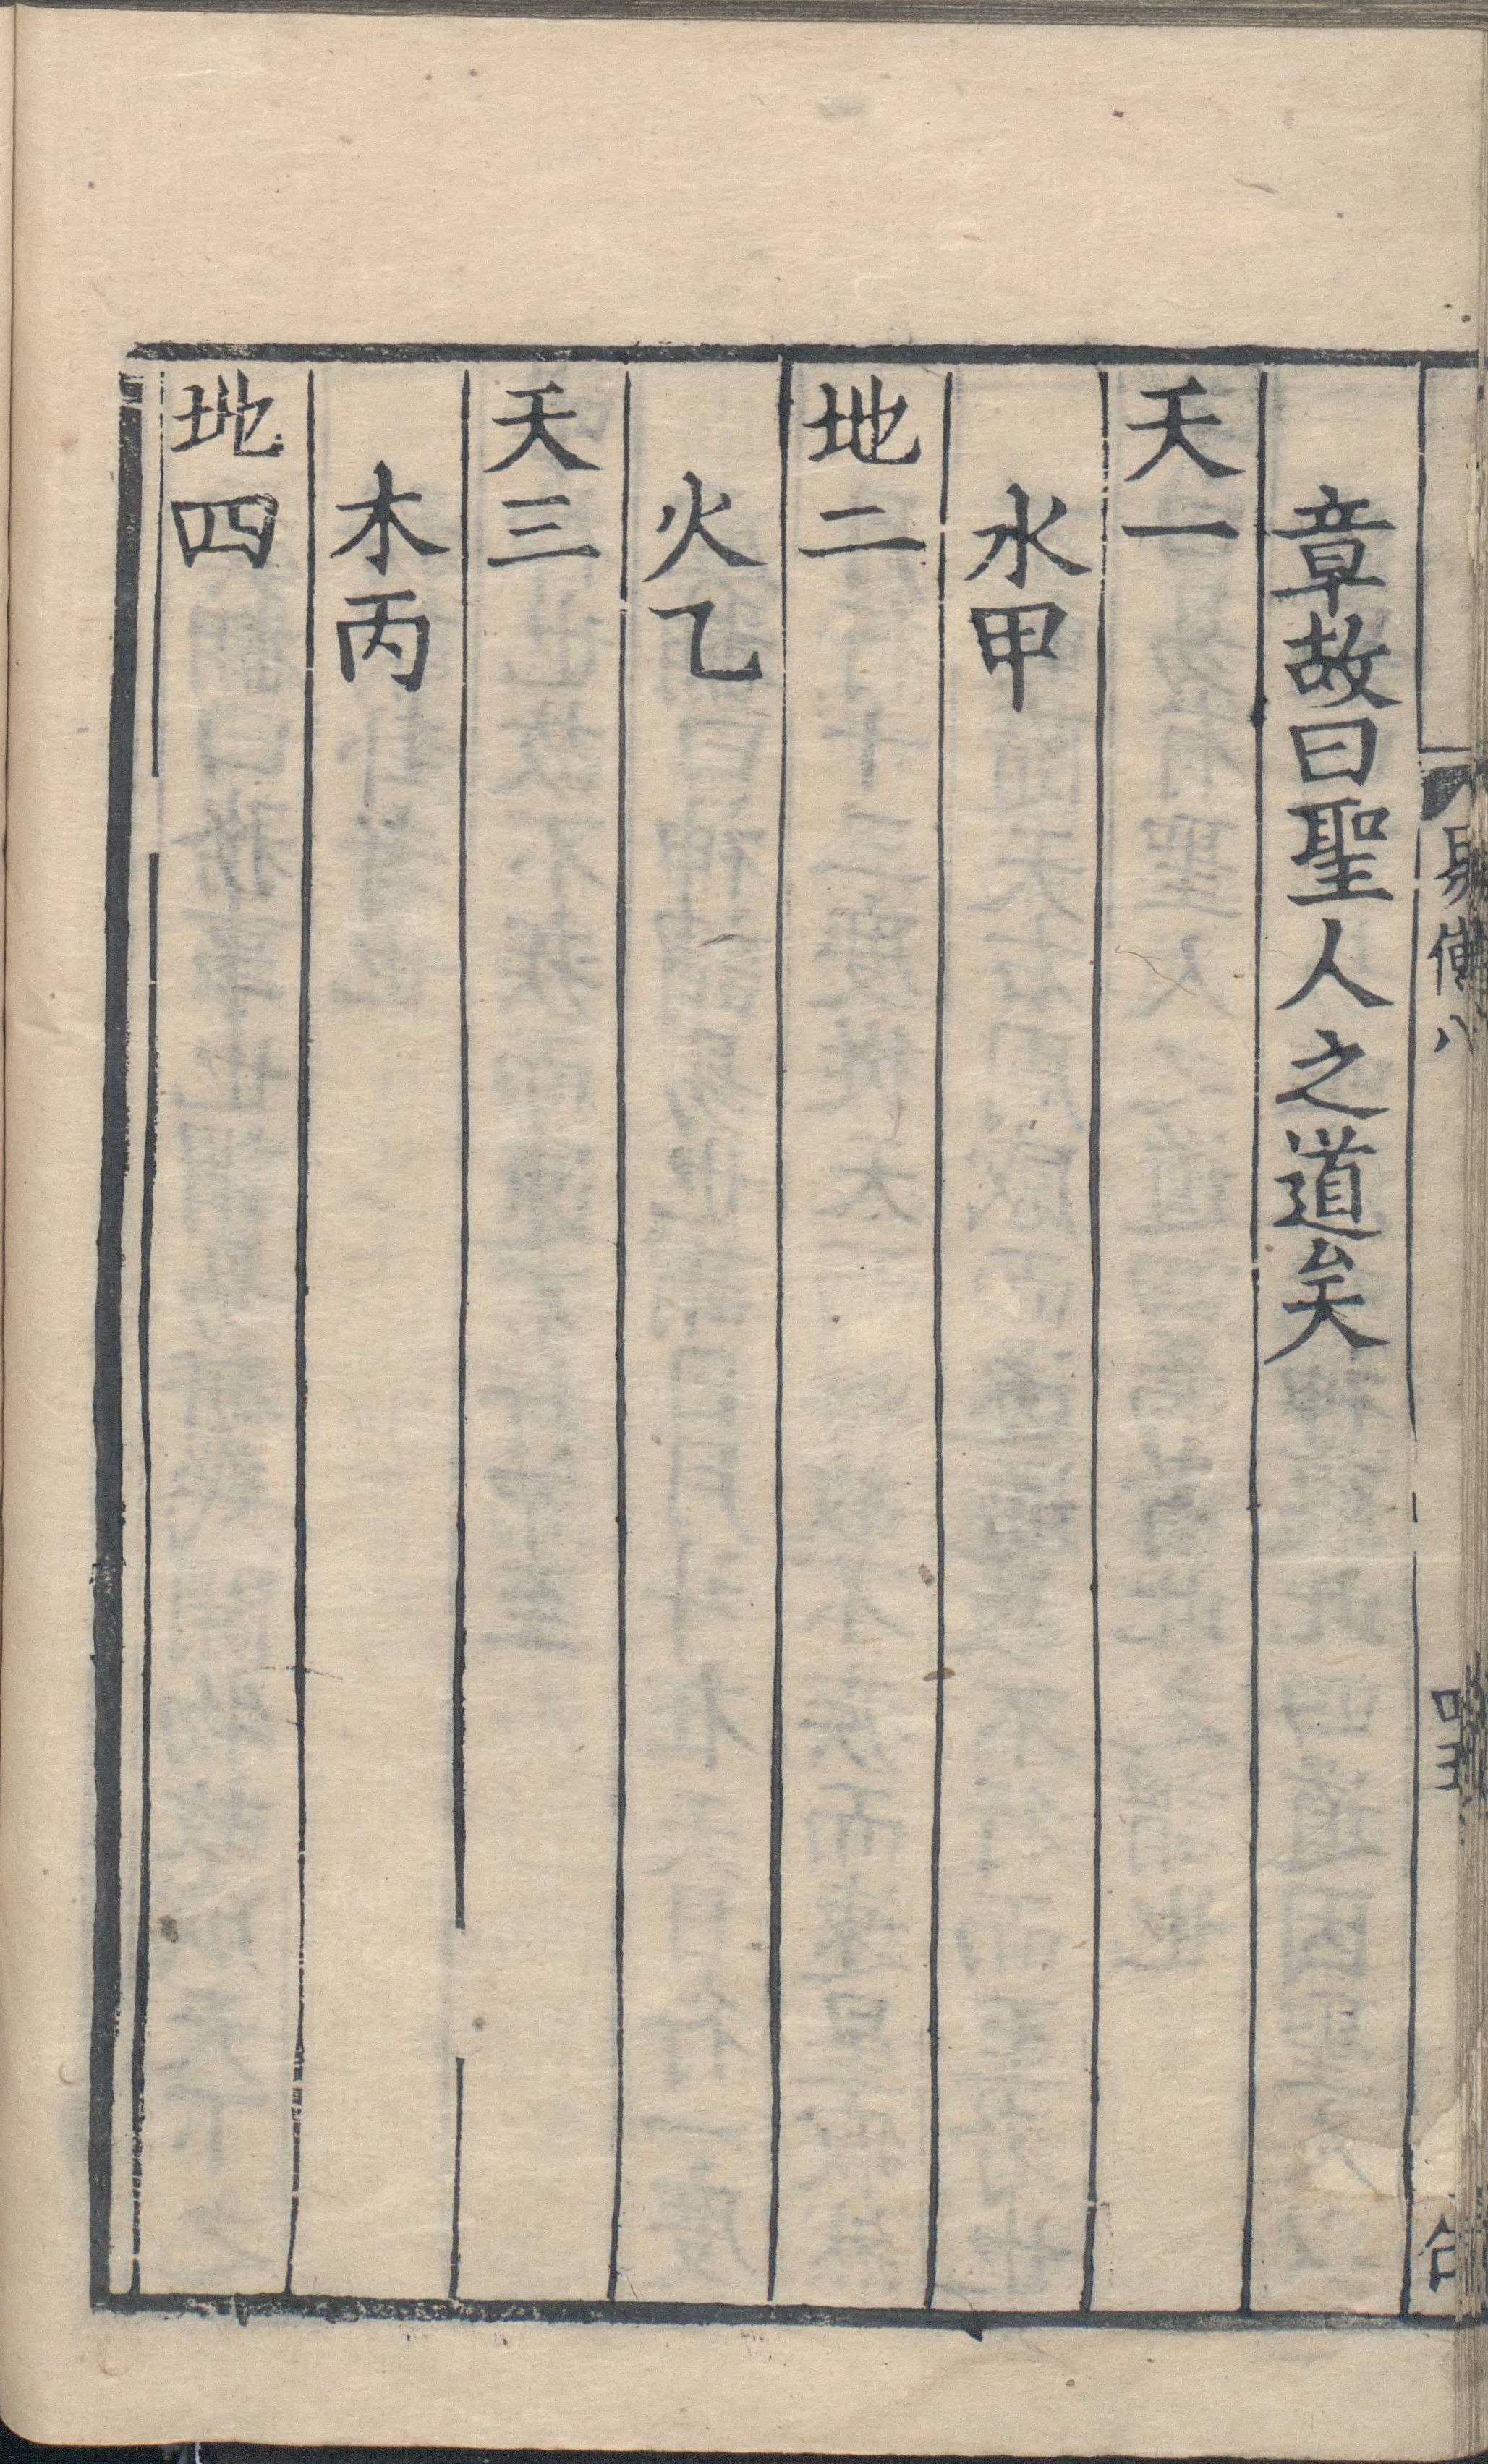 章故曰聖人之道矣
天一
水甲
地二
火乙
天三
木丙
地四